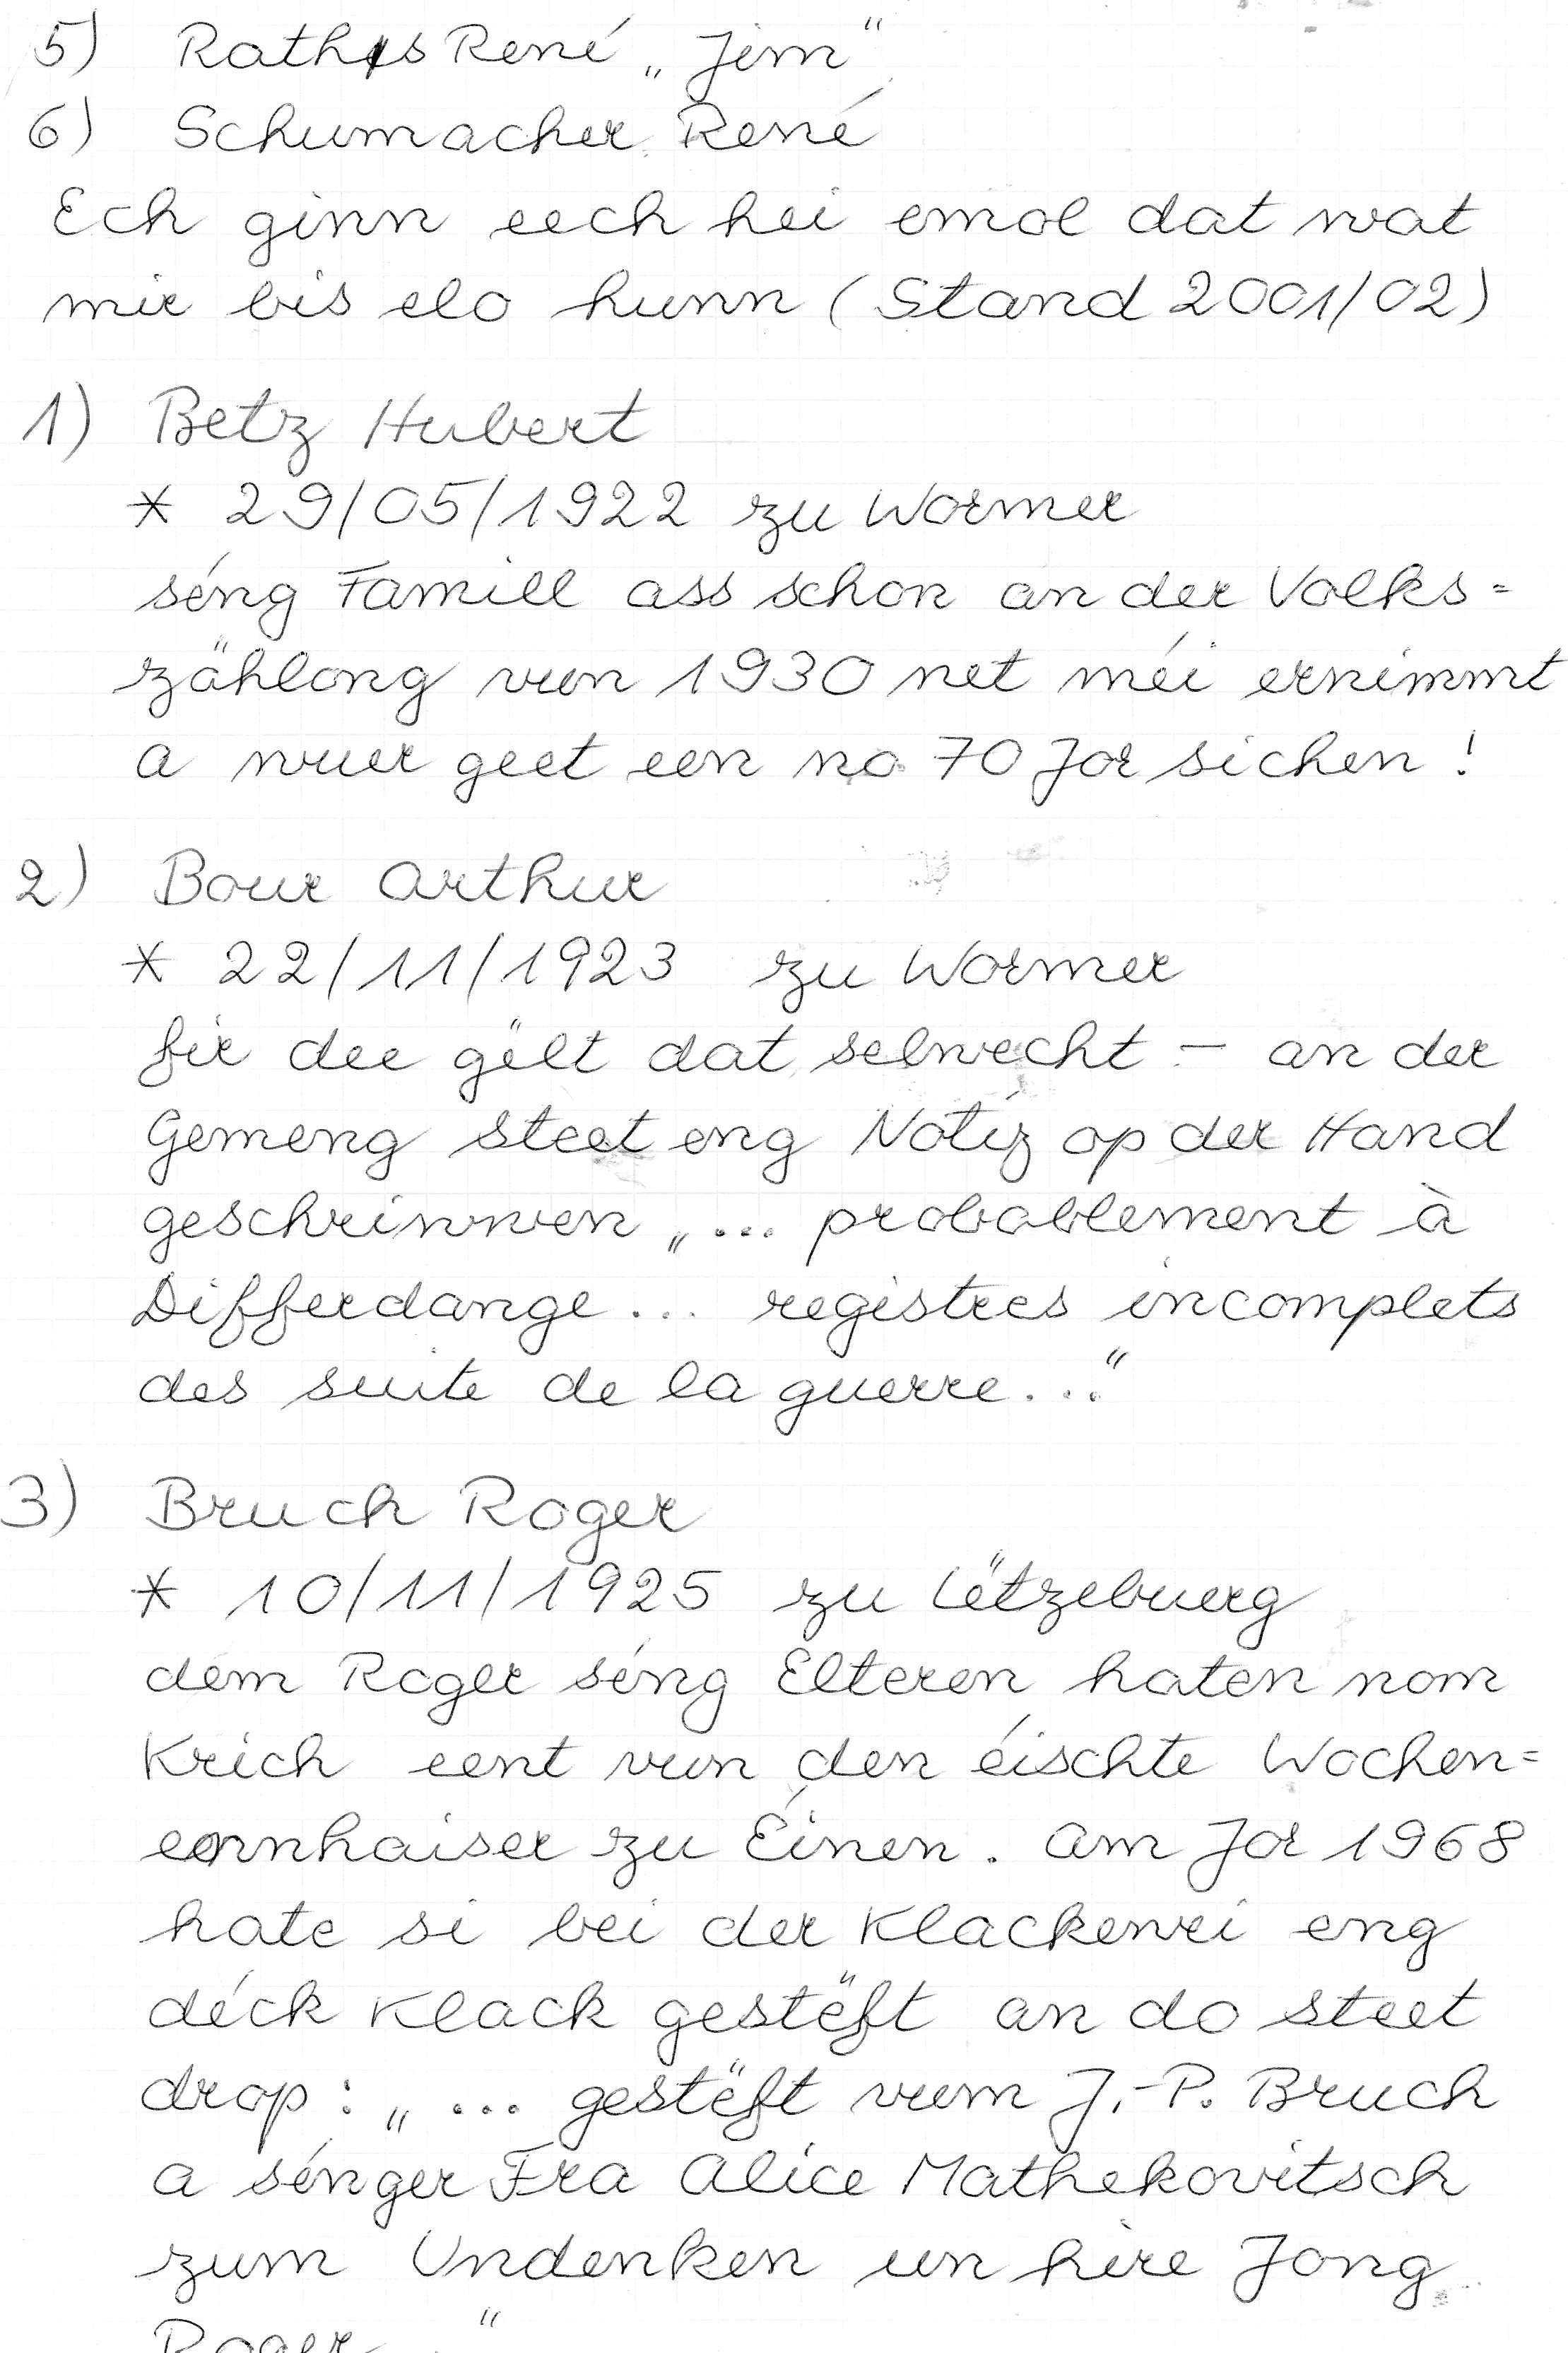 5) Rathis René „Jim“
6) Schumacher René
Ech ginn eech hei emol dat wat
mir bis elo hunn (Stand 2001/02)
1) Betz Hubert
* 29/05/1922 zu Wormer
séng Famill ass schon an der Volks=
zählong vun 1930 net méi ernimmt
a wuer geet een no 70 Jor sichen!
2) Bour Arthur
* 22/11/1923 zu Wormer
fir dee gëlt dat selwecht – an der
Gemeng steet eng Notiz op der Hand
geschriwwen „... probablement à
Differdange... registres incomplets
des suite de la guerre...“
3) Bruch Roger
* 10/11/1925 zu Lëtzebuerg
dem Roger séng Elteren haten nom
Krich eent vun den éischte Wochen=
ennhaiser zu Éinen. Am Jor 1968
hate si bei der Klackewei eng
déck Klack gestëft an do steet
drop: „... gestëft vum J.-P. Bruch
a sénger Fra Alice Mathekovitsch
zum Undenken un hire Jong
Roger...“